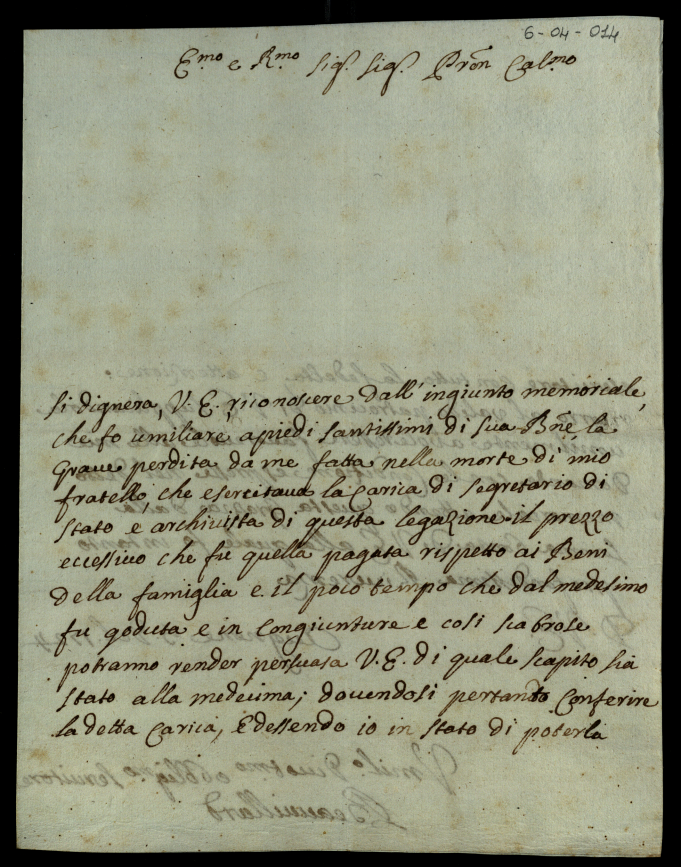 6-04-014
E.mo e R.mo Sig.r Sig.r Pron Col.mo
Si dignera, V. E. riconoscere dall'ingiunto memoriale,
che fo umiliare, a piedi santissimi di sua Bñe, la
grave perdita da me fatta nella morte di mio
fratello, che esercitava la Carica di segretario di
stato e archivista di questa legazione. il prezzo
eccessivo che fu quella pagata rispetto ai Beni
della famiglia e il poco tempo che dal medesimo
fu goduta e in Congiunture e cosi scabrose
potranno render persuasa V. E. di quale scapito sia
stato alla medecima; dovendosi pertanto Conferire
la detta Carica, Edessendo io in stato di poterla